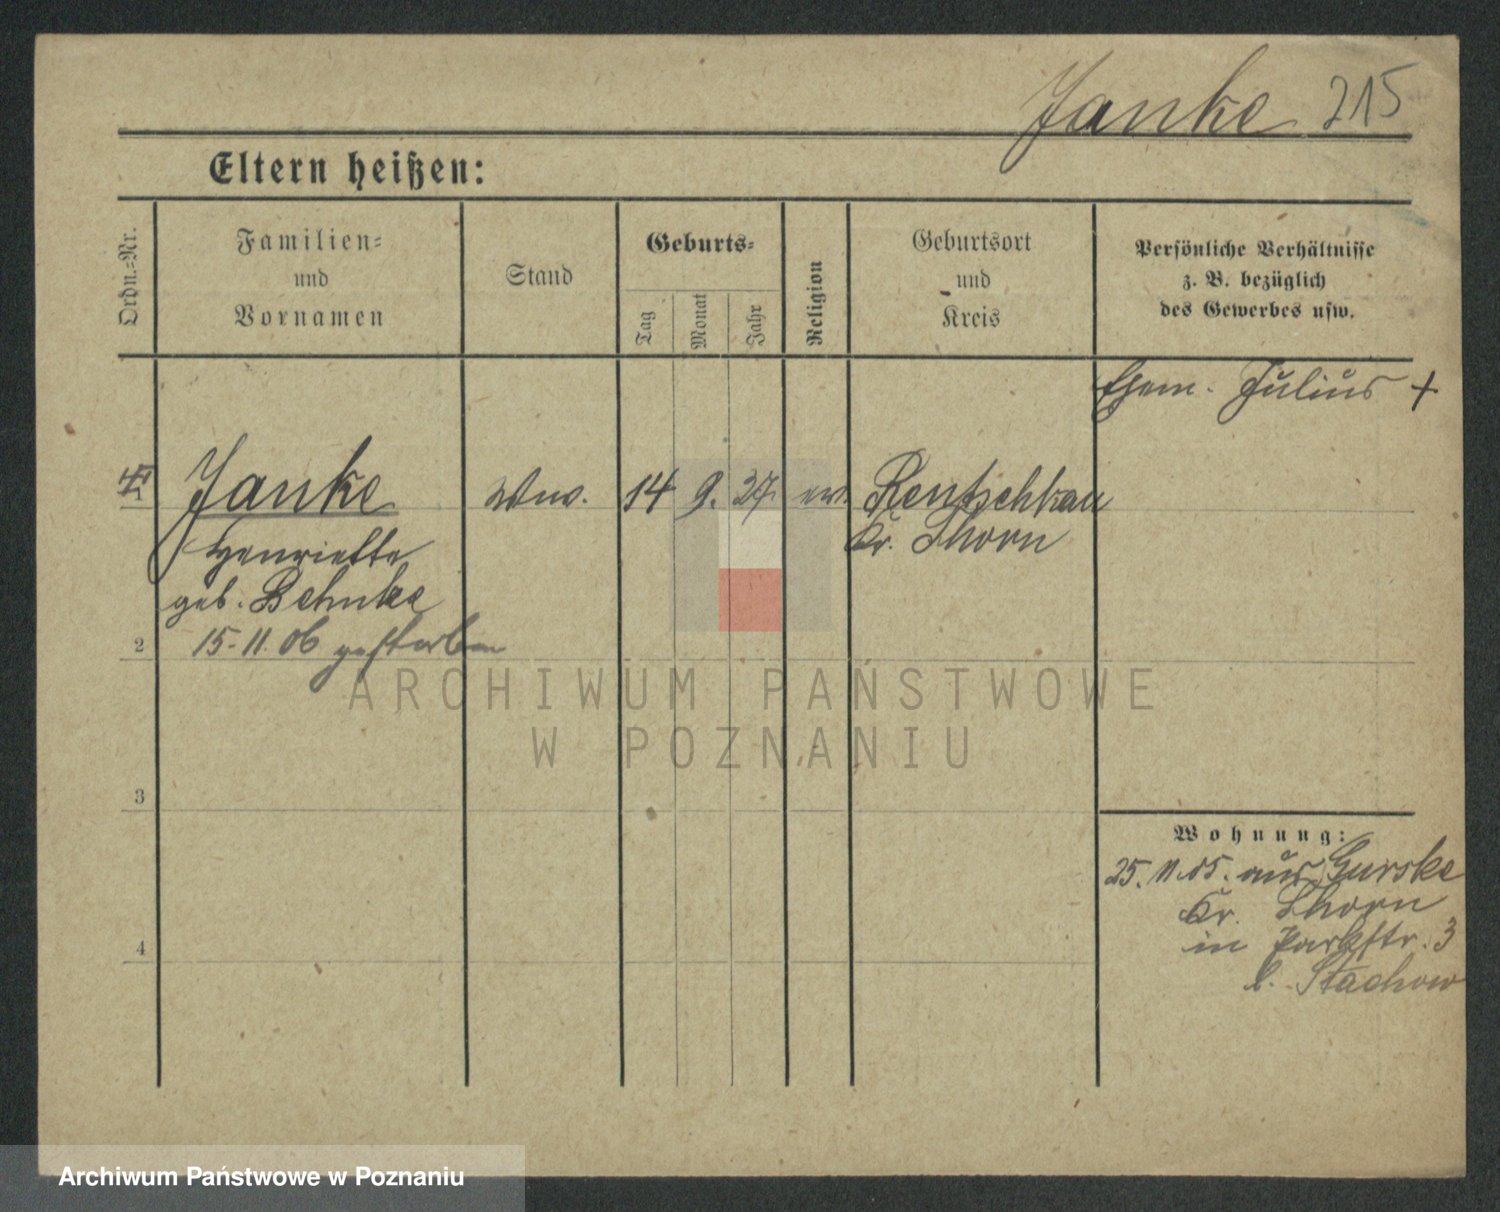 Janke 215
Eltern heißen:
Ordn.-Nr.
Familien-
und
Vornamen
Stand
Geburts-
Tag
Monat
Jahr
Religion
Geburtsort
und
Kreis
Persönliche Verhältnisse
z. B. bezüglich
des Gewerbes usw.
Ehem. Julius +
Janke Ww. 14 9. 27 ev. Rentschkau
Kr. Thorn
Henriette
geb. Behnke
15.11.06 gestorben
2
3
4
Wohnung:
25. 11. 05. aus Gurske
Kr. Thorn
in Parkstr. 3
b. Stachow
ARCHIWUM PAŃSTWOWE
W POZNANIU
Archiwum Państwowe w Poznaniu